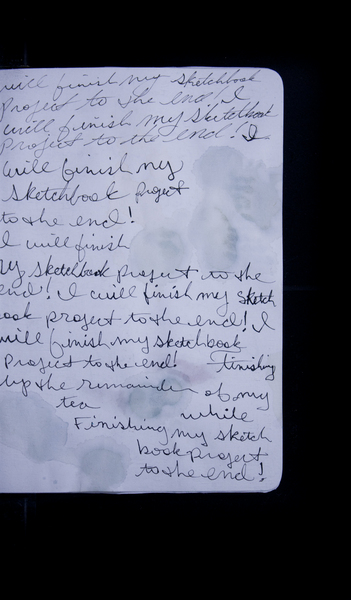 will finish my sketchbook
Project to the end! I
will finish my sketchbook
Project to the end! I
will finish my
sketchbook project
to the end!
I will finish
my sketchbook project to the
end! I will finish my sketch
book project to the end! I
will finish my sketchbook
Project to the end! Finishing
up the remainder of my
tea while
Finishing my sketch
book project
to the end!